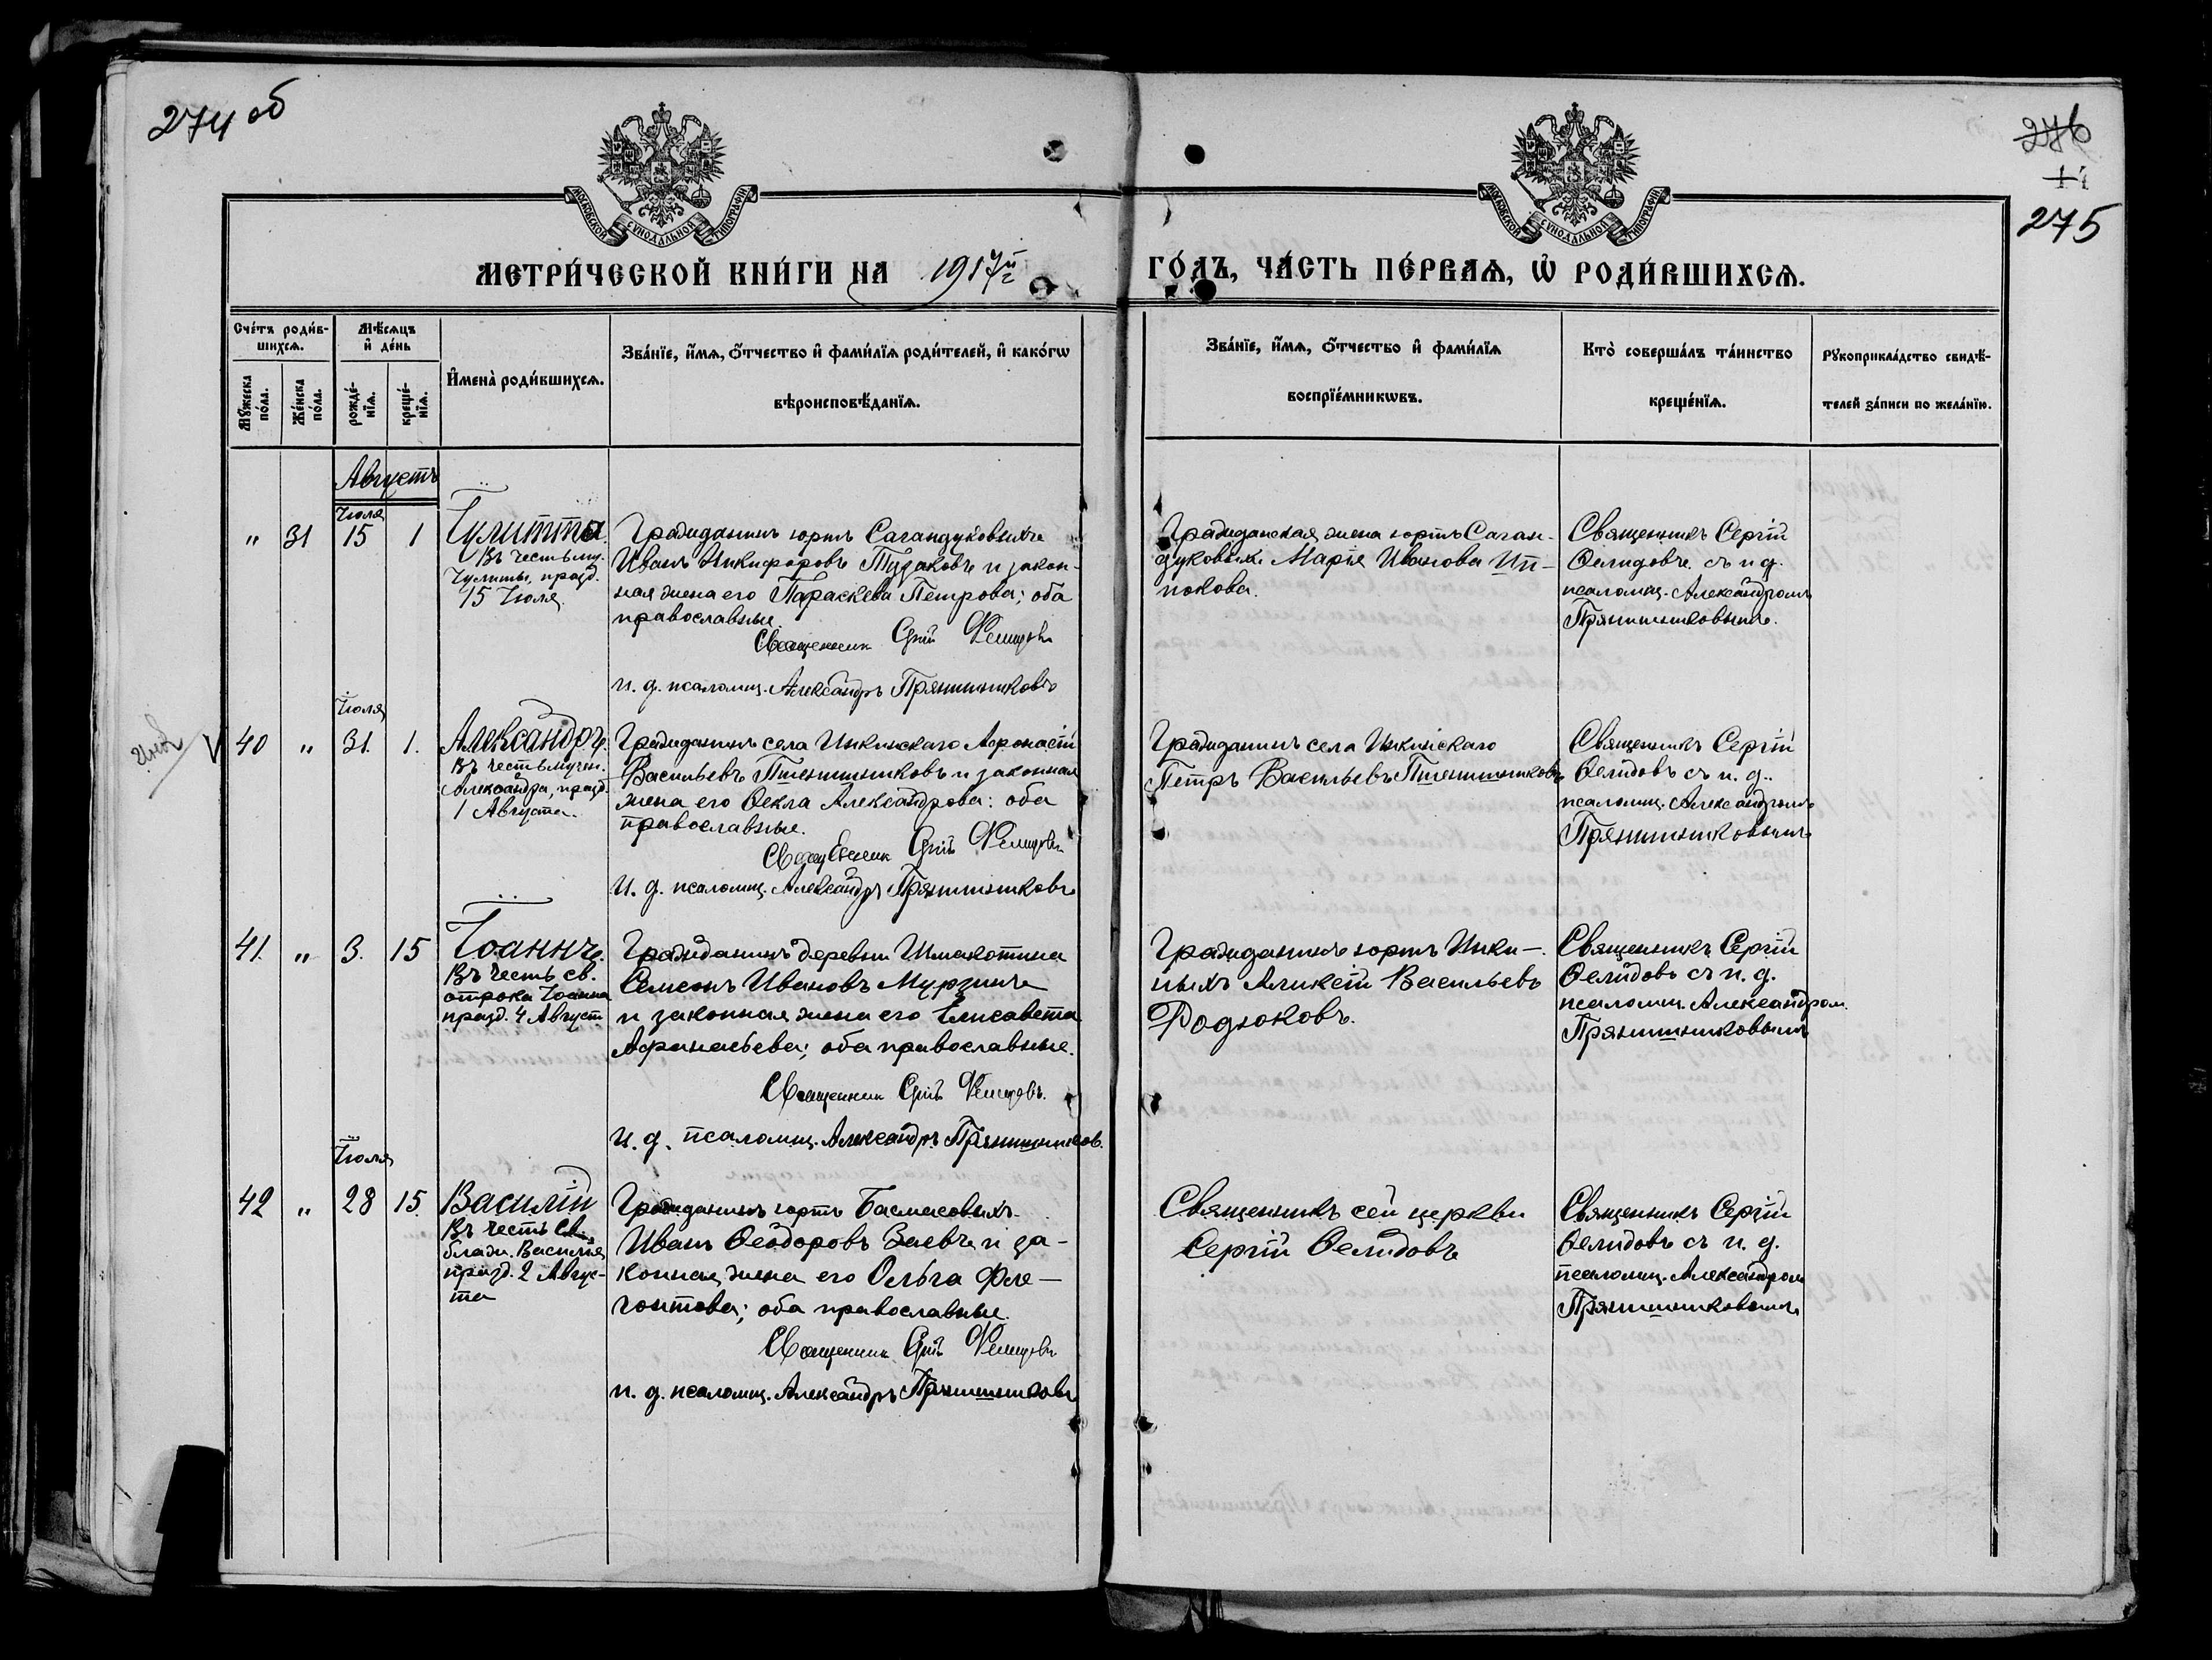 274 об
276
11
275
МОСКОВСКОЙ СѴНОДАЛЬНОЙ ТИПОГРАФІИ
МОСКОВСКОЙ СѴНОДАЛЬНОЙ ТИПОГРАФІИ
МЕТРИ́ЧЕСКОЙ КНИ́ГИ НА 1917 й г. ГО́ДЪ, ЧА́СТЬ ПЕ́РВАѦ, Ѡ҆ РОДИ́ВШИХСѦ.
Сче́тъ роди́в-
шихсѧ.
Мѣ́сѧцъ
и҆ де́нь
Мꙋ́жеска
по́ла.
Же́нска
по́ла.
рожде́-
нїѧ.
креще́-
нїѧ.
И҆мена̀ роди́вшихсѧ.
Зва́нїе, и҆́мѧ, ѻ҆́тчество и҆ фами́лїѧ роди́телей, и҆ како́гѡ
вѣроисповѣ́данїѧ.
Зва́нїе, и҆́мѧ, ѻ҆́тчество и҆ фами́лїѧ
воспрїе́мникѡвъ.
Кто̀ соверша́лъ та́инство
креще́нїѧ.
Рꙋкоприкла́дство свидѣ́-
телей за́писи по жела́нїю.
Августъ
Іюля
" 31 15 1
Іулитта.
Въ честь му.
Іулиты, празд.
15 Іюля.
Гражданинъ юртъ Сагандуковыхъ
Иванъ Никифоровъ Тузаковъ и закон-
ная жена его Параскева Петрова; оба
православные.
Священник Сергій Фелицовъ
и. д. псаломщ. Александръ Прянишниковъ
Гражданская жена юртъ Саган-
дуковых. Марія Иванова Ип-
покова.
Священникъ Сергій
Ѳелидовъ. съ и д.
псаломщ. Александромъ
Прянишниковымъ.
Іюля
40 " 31. 1.
Александръ.
Въ честь мучен.
Александра, празд.
1 Августа.
Гражданинъ села Инкинскаго Афонасій
Васильевъ Пшеничниковъ и законная
жена его Ѳекла Александрова: оба
православные.
Священник Сергій Фелицовъ
и. д. псаломщ. Александръ Прянишниковъ
Гражданинъ села Инкинскаго
Петръ Васильевъ Пшеничниковъ
Священникъ Сергій
Ѳелидовъ съ и. д.
псаломщ. Александромъ
Прянишниковымъ
41. " 3. 15
Іоаннъ.
Въ честь св.
отрока Іоанна
празд. 4 Август
Гражданинъ деревни Шмакотина
Семеонъ Ивановъ Мурзинъ
и законная жена его Елисавета
Афанасьева; оба православные.
Священник Сергій Фелицовъ.
и. д. псаломщ. Александръ Прянишников.
Гражданинъ юртъ Инки-
ныхъ Аникетій Васильевъ
Родюковъ.
Священникъ Сергій
Ѳелидовъ съ и. д.
псаломщ. Александром.
Прянишниковымъ
Іюля
42 " 28 15.
Василій
Въ честь Св.
блажн. Василія,
празд. 2 Авгус-
та
Гражданинъ юртъ Басмасовыхъ.
Иванъ Ѳеодоровъ Заевъ и за-
конная жена его Ольга Фле-
гонтова; оба православные.
Священник Сергій Фелицовъ
и. д. псаломщ. Александръ Прянишниковъ
Священникъ сей церкви
Сергій Ѳелидовъ
Священникъ Сергій
Ѳелидовъ съ и. д.
псаломщ. Александром
Прянишниковымъ